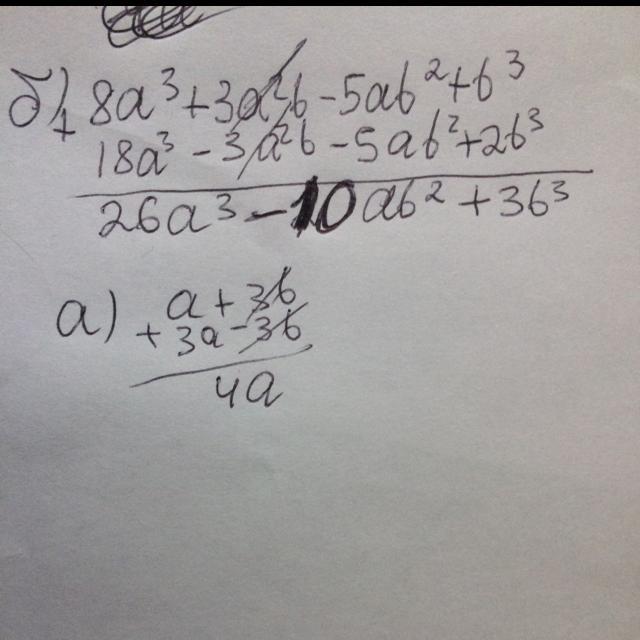 б) 8a³ + 3a²b - 5ab² + b³
+ 18a³ - 3a²b - 5ab² + 2b³
26a³ - 10ab² + 3b³
а) a + 3b
+ 3a - 3b
4a